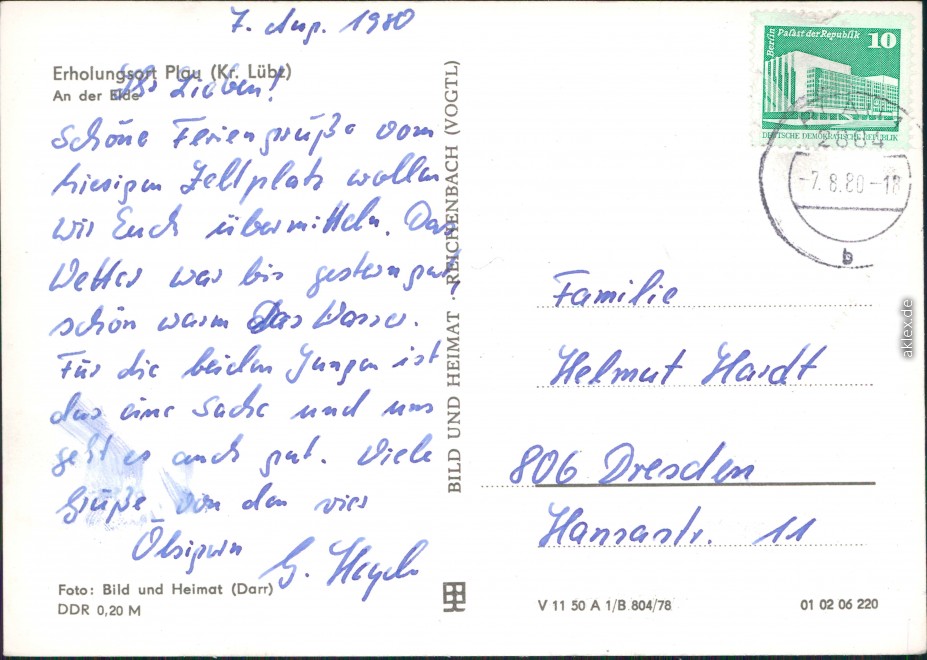 7. Aug. 1980
Erholungsort Plau (Kr. Lübz)
An der Elde
Ihr Lieben!
Schöne Feriengrüße vom
hiesigen Zeltplatz wollen
wir Euch übermitteln. Das
Wetter war bis gestern gut,
schön warm das Wasser.
Für die beiden Jungen ist
das eine Sache und uns
geht es auch gut. Viele
Grüße von den vier
G.
Foto: Bild und Heimat (Darr)
DDR 0,20 M
BILD UND HEIMAT · REICHENBACH (VOGTL)
Berlin Palast der Republik 10
DEUTSCHE DEMOKRATISCHE REPUBLIK
PLAU
2864
-7.8.80-18
b
Familie
Helmut Hardt
806 Dresden
Hansastr. 11
V 11 50 A 1/B 804/78
01 02 06 220
aklex.de